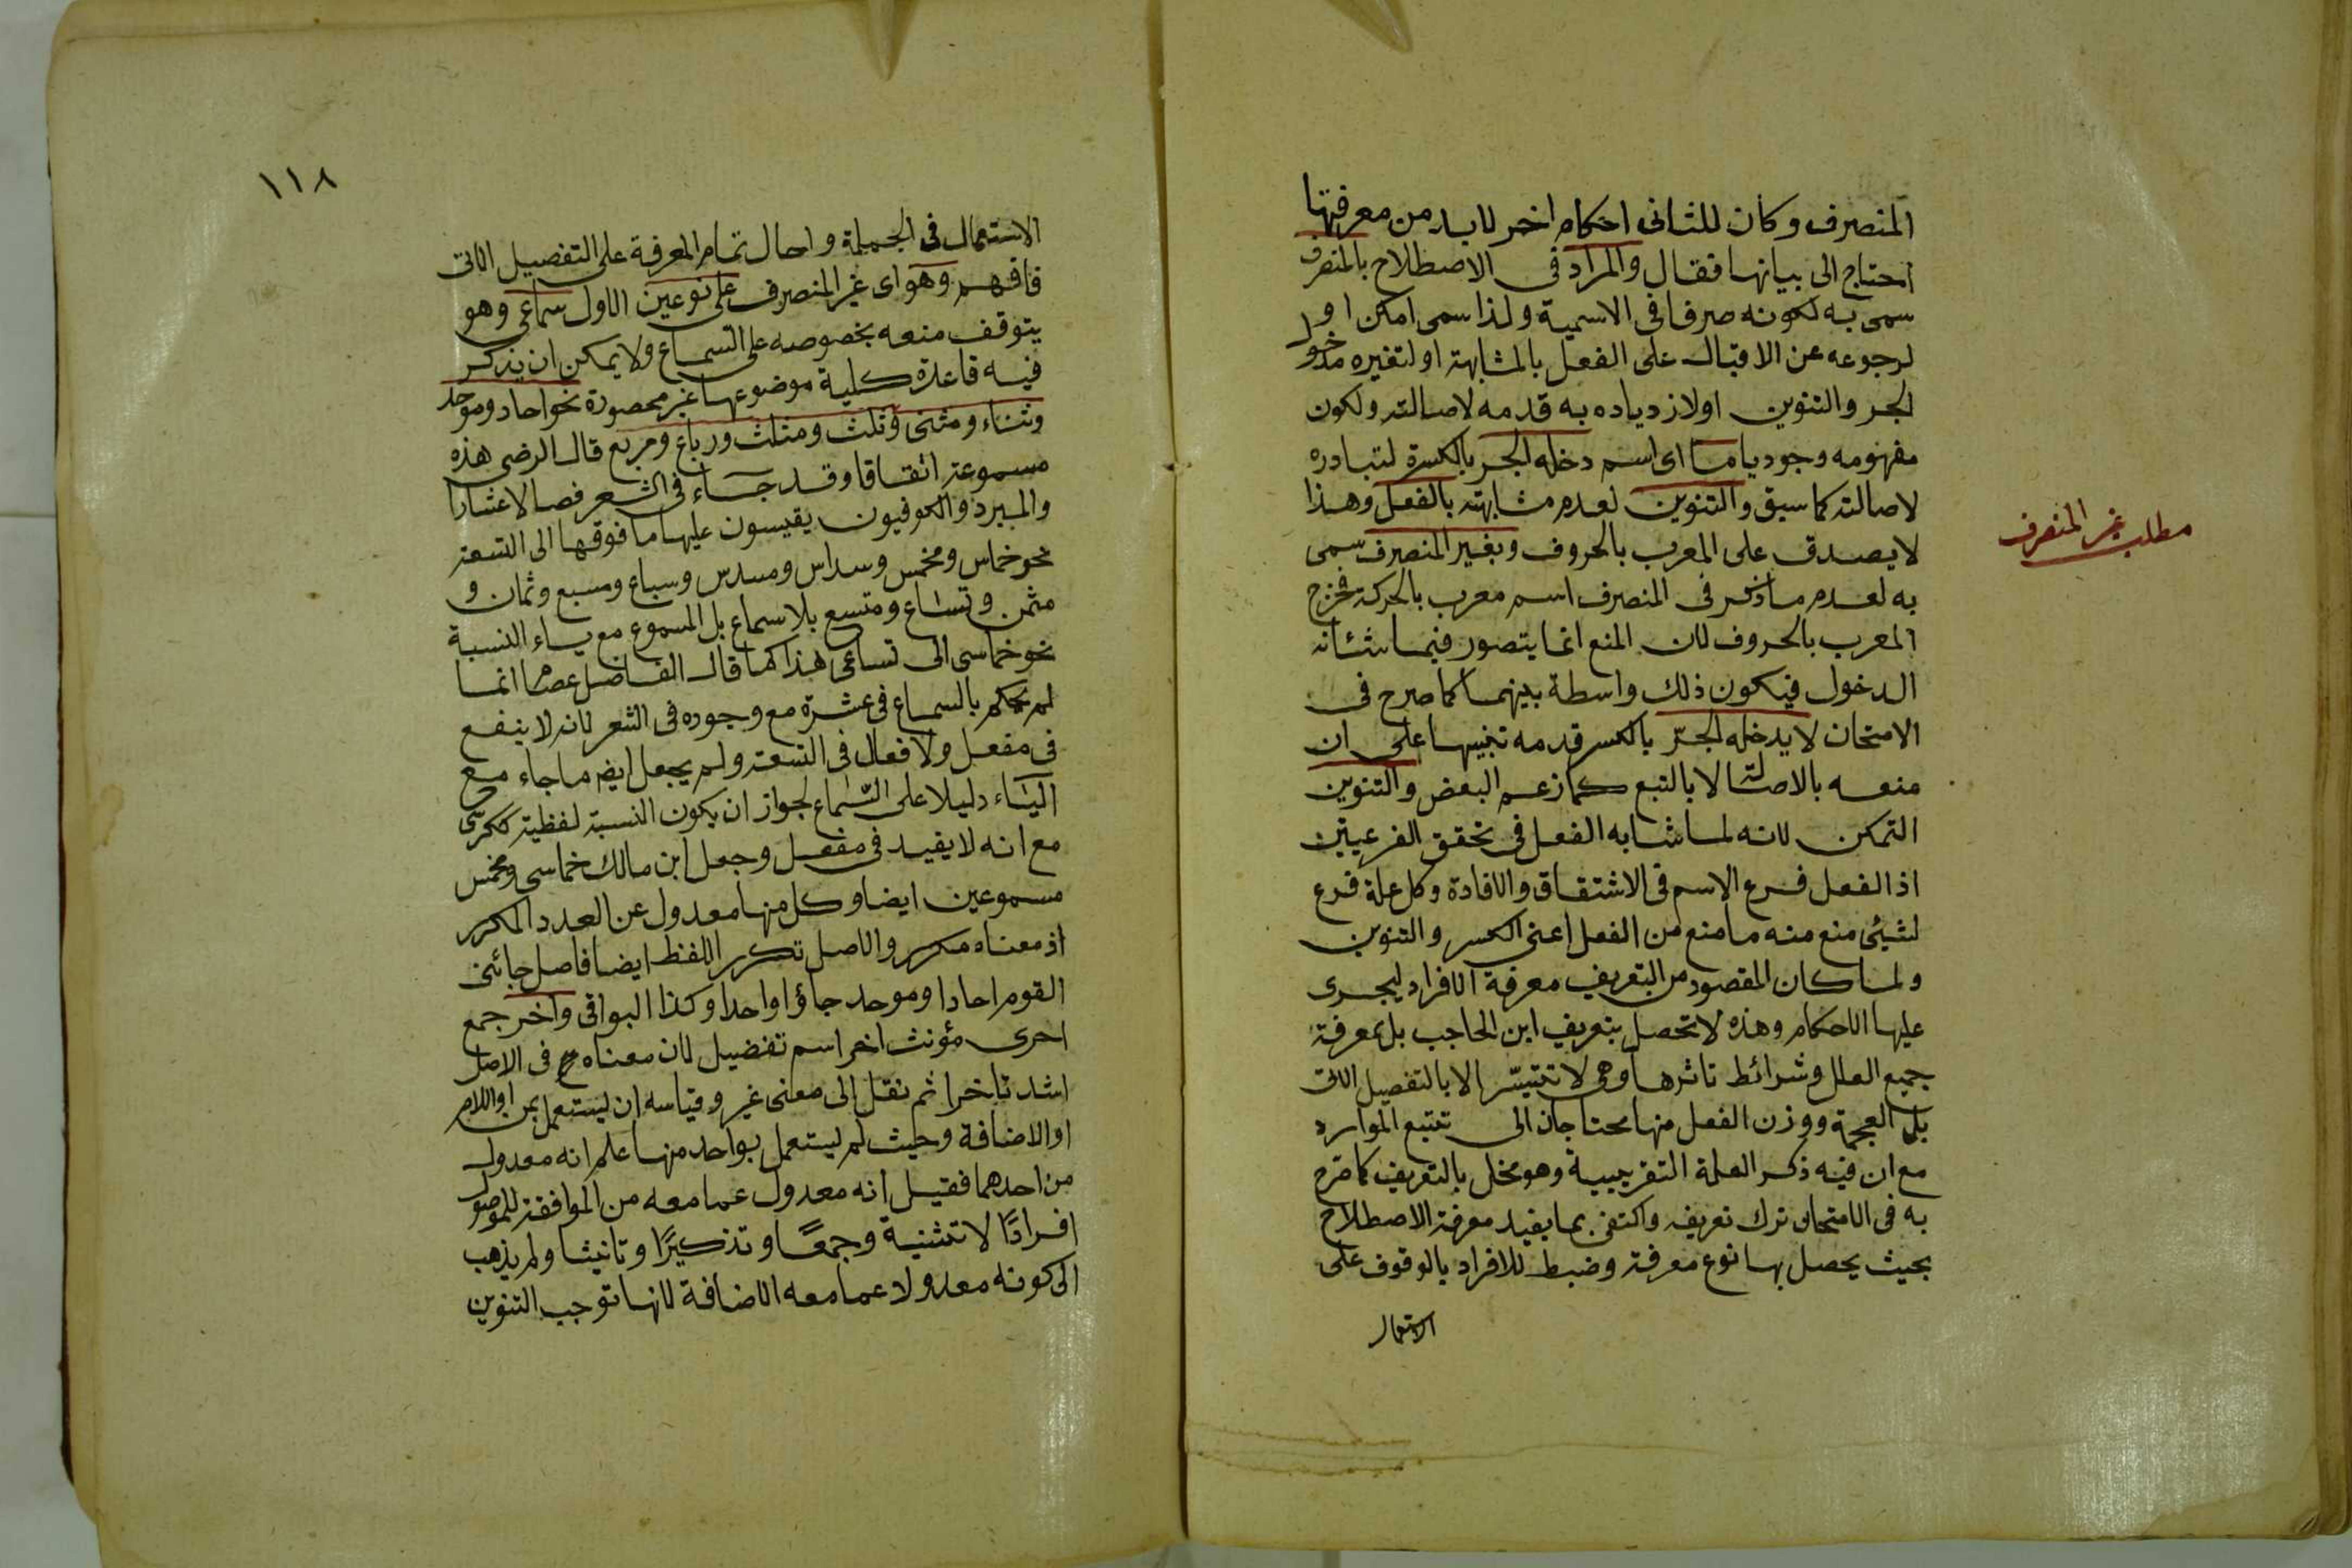 المنصرف وكان للثانى احكام اخر لابد من معرفتها
احتاج الى بيانها فقال والمراد فى الاصطلاح بالمنصرف
سمى به لكونه صرفا فى الاسمية ولذا سمى امكن او
لرجوعه عن الاقبال على الفعل بالمشابهة او لتغيره مدخول
الجر والتنوين اولازدياده به قدمه لاصالته ولكون
مفهومه وجوديا ما اى اسم دخله الجر بالكسرة لتبادره
لاصالته كما سبق والتنوين لعدم مشابهته بالفعل وهذا
لايصدق على المعرب بالحروف وبغير المنصرف سمى
به لعدم ماذكر فى المنصرف اسم معرب بالحركة فخرج
المعرب بالحروف لان المنع انما يتصور فيما شئانه
الدخول فيكون ذلك واسطة بينهما كما صرح فى
الامتحان لايدخله الجرّ بالكسر قدمه تنبيها على ان
منعه بالاصالة لا بالتبع كما زعم البعض والتنوين
التمكن لانه لما شابه الفعل فى تحقق الفرعيتين
اذ الفعل فرع الاسم فى الاشتقاق والافادة وكل علة فرع
لشيئ منع منه ما منع من الفعل اعنى الكسر والتنوين
ولما كان المقصود من التعريف معرفة الافراد ليجرى
عليها الاحكام وهذه لاتحصل بتعريف ابن الحاجب بل بمعرفة
جميع العلل وشرائط تاثرها وهى لا تتيسّر الا بالتفصيل الاتى
بل العجمة ووزن الفعل منها محتاجان الى تتبع الموارد
مع ان فيه ذكر العلة التقريبية وهو مخل بالتعريف كما صرح
به فى الامتحان ترك تعريفه واكتفى بما يفيد معرفة الاصطلاح
بحيث يحصل بها نوع معرفة وضبط للافراد بالوقوف على
الاستعمال
مطلب غير المنصرف
١١٨
الاستعمال فى الجملة واحال تمام المعرفة على التفصيل الاتى
فافهم وهو اى غير المنصرف على نوعين الاول سماعى وهو
يتوقف منعه بخصوصه على السماع ولايمكن ان يذكر
فيه قاعدة كلية موضوعها غير محصورة نحو احاد وموحد
وثناء ومثنى وثلث ومثلث ورباع ومربع قال الرضى هذه
مسموعة اتفاقا وقد جاء فى الشعر فصالا عشارا
والمبرد والكوفيون يقيسون عليها ما فوقها الى التسعة
نحو خماس ومخمس وسداس ومسدس وسباع ومسبع وثمان و
مثمن وتساع ومتسع بلا سماع بل المسموع مع ياء النسبة
نحو خماسى الى تساعى هذا كما قال الفاضل عصام انما
لم يحكم بالسماع فى عشرة مع وجوده فى الشعر لانه لا ينفع
فى مفعل ولافعال فى التسعة ولم يجعل ايضه ماجاء مع
الياء دليلا على السّماع لجواز ان يكون النسبة لفظية ككرسى
مع انه لايفيد فى مفعل وجعل ابن مالك خماسى ومخمس
مسموعين ايضا وكل منها معدول عن العدد المكرر
اذ معناه مكرر والاصل تكرر اللفظ ايضا فاصل جائنى
القوم احادا وموحد جاؤا واحدا وكذا البواقى واخر جمع
احرى مؤنث اخر اسم تفضيل لان معناه فى الاصل
اشد تاخرا ثم نقل الى معنى غير وقياسه ان يستعمل بمن او اللام
او الاضافة وحيث لم يستعمل بواحد منها علم انه معدول
من احدهما فقيل انه معدول عما معه من الموافقة للموصوف
افرادًا لا تثنية وجمعًا وتذكيرًا وتانيثا ولم يذهب
الى كونه معدولا عما معه الاضافة لانها توجب التنوين